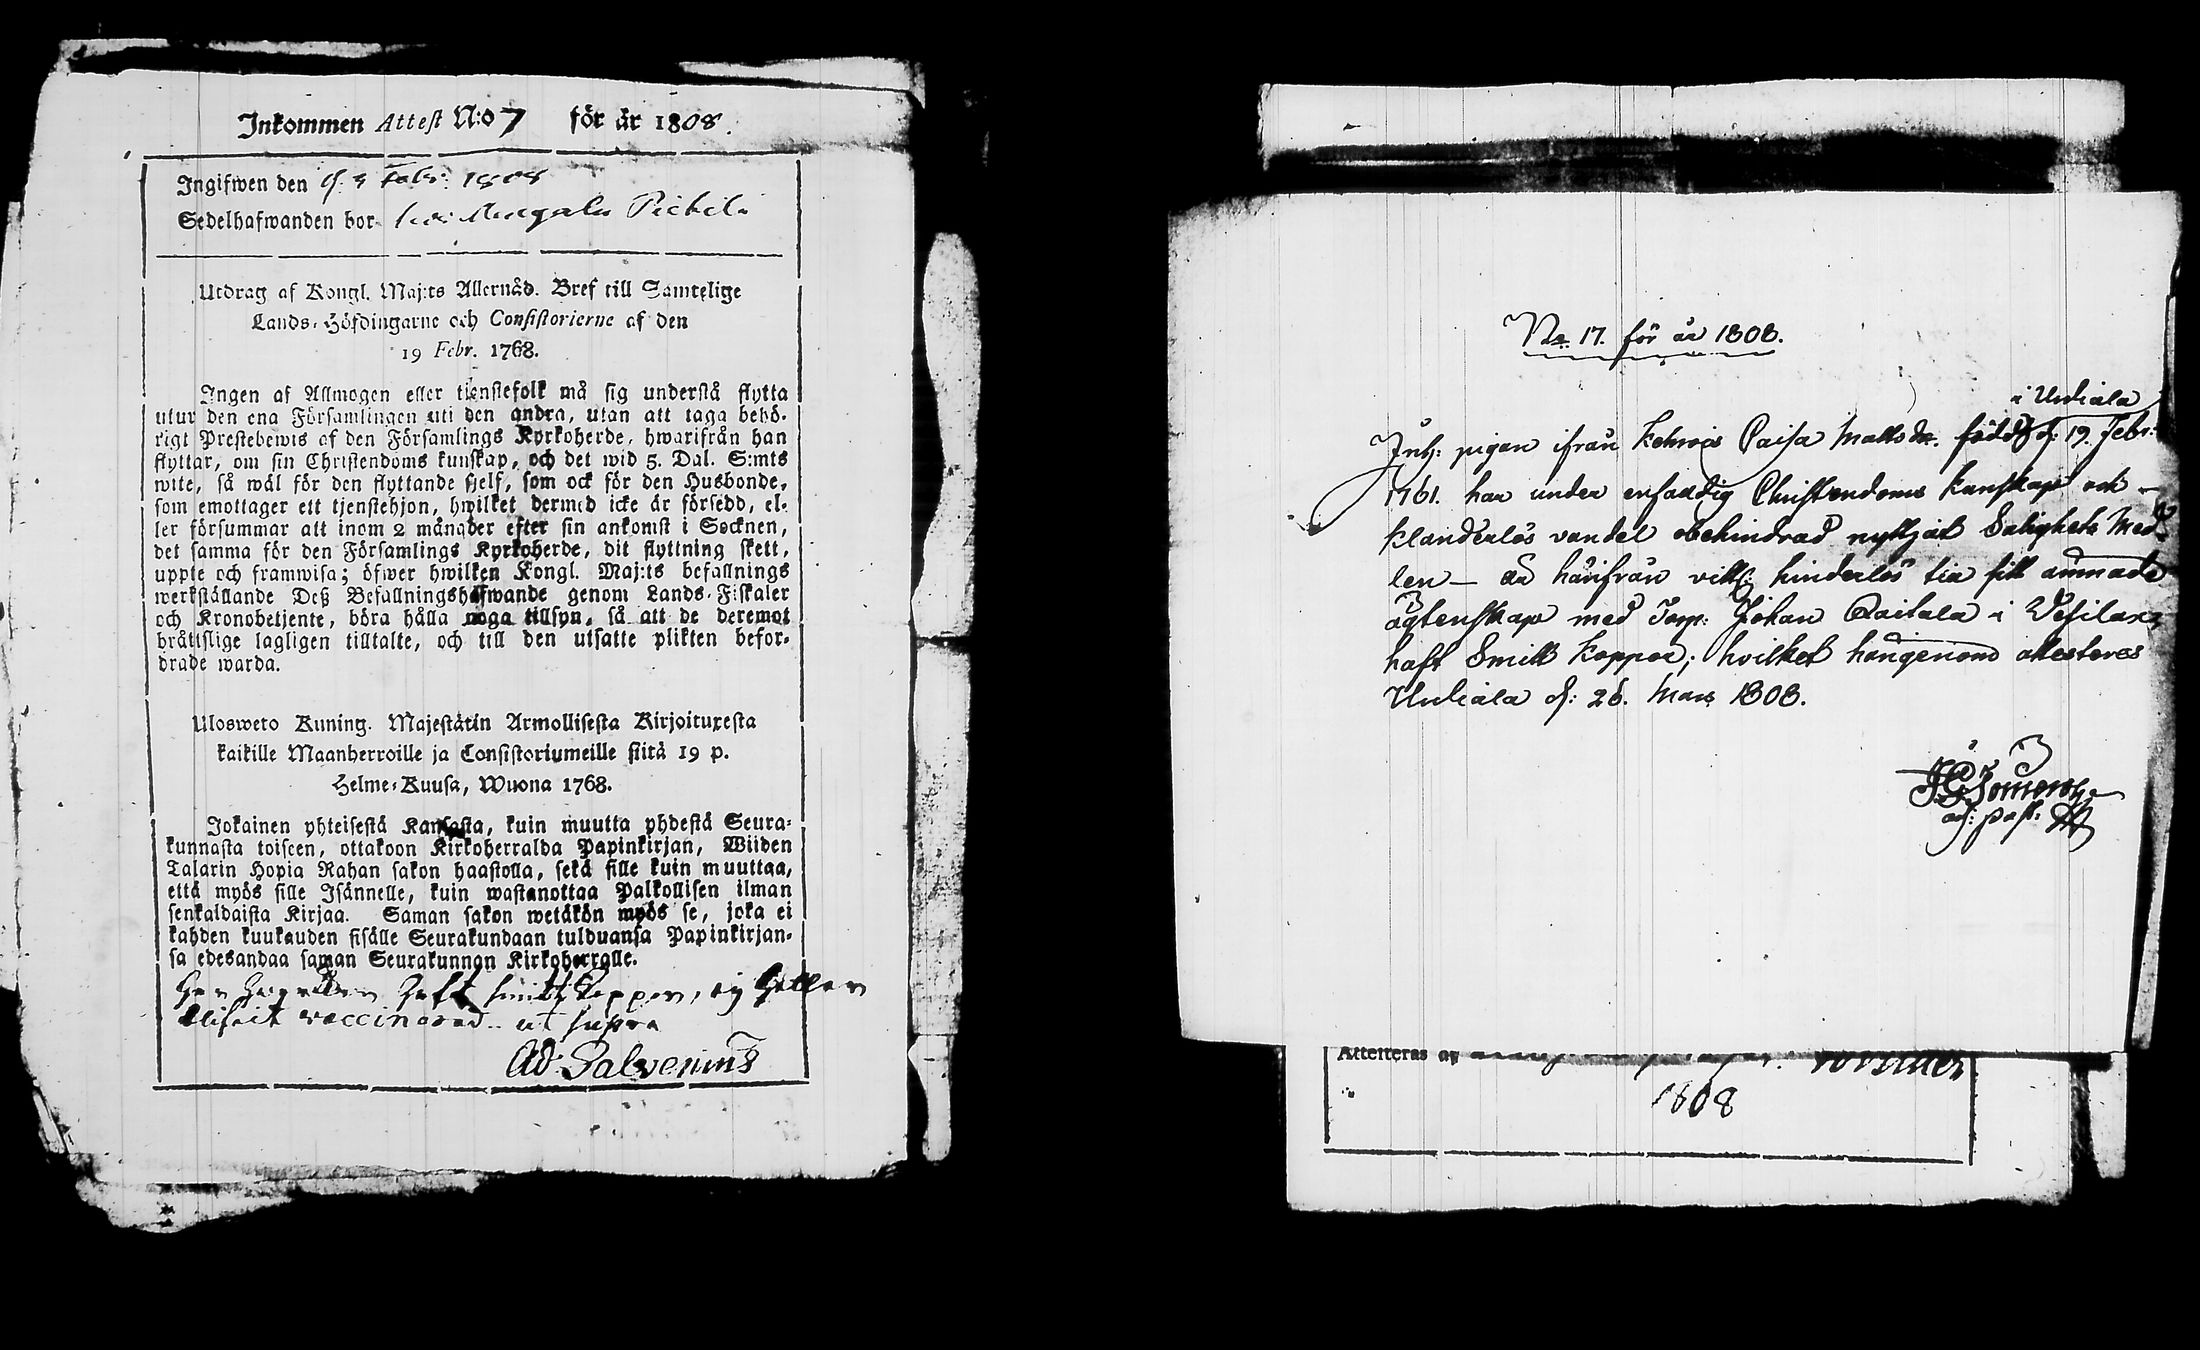 Inkommen Attest N:o 7 för år 1808.
Ingifwen den d. 3 Febr. 1808
Sedelhafwanden bor
Utdrag af Kongl. Maj:ts Allernåd. Bref till Samtelige
Lands-Höfdingarne och Consistorierne af den
19 Febr. 1768.
Ingen af Allmogen eller tienstefolk må sig understå flytta
utur den ena Församlingen uti den andra, utan att taga behö-
rigt Prestebewis af den Församlings Kyrkoherde, hwarifrån han
flyttar, om sin Christendoms kunskap, och det wid 5. Dal. S:mts
wite, så wäl för den flyttande sjelf, som ock för den Husbonde,
som emottager ett tjenstehjon, hwilket dermed icke är försedd, el-
ler försummar att inom 2 månader efter sin ankomst i Socknen,
det samma för den Församlings Kyrkoherde, dit flyttning skett,
uppte och framwisa; öfwer hwilken Kongl. Maj:ts befallnings
werkställande Deß Befallningshafwande genom Lands-Fiskaler
och Kronobetjente, böra hålla noga tillsyn, så att de deremot
brättslige lagligen tilltalte, och till den utsatte plikten befor-
drade warda.
Ulosweto Kuning. Majestätin Armollisesta Kirjoituxesta
kaikille Maanherroille ja Consistoriumeille siitä 19 p.
Helme-Kuusa, Wuona 1768.
Jokainen yhteisestä Kansasta, kuin muutta yhdestä Seura-
kunnasta toiseen, ottakoon Kirkoherralda Papinkirjan, Wiiden
Talarin Hopia Rahan sakon haastolla, sekä sille kuin muuttaa,
että myös sille Isännelle, kuin wastanottaa Palkollisen ilman
senkaldaista Kirjaa. Saman sakon wetäkön myös se, joka ei
kahden kuukauden sisälle Seurakundaan tulduansa Papinkirjan-
sa edesandaa saman Seurakunnan Kirkoherralle.
haft smitt Koppor, ej heller
blifvit vaccinerad ut supra
Ad. Salvenius
No 17. för år 1808.
i Urdiala
Inh: pigan ifrån Kehrois Caisa Mattsdr. född d: 19. Febr:
1761. har under enfaldig Christendoms kunskap och –
klanderlös vandel obehindrad nyttjat Salighets Med-
len – är härifrån hinderlös till ämnade
ägtenskap med Torp: Johan Qaitala i Vesilax,
haft Smitt Koppor; hvilket härigenom attesteras
Urdiala d: 26. Mars 1808.
adj: past:
Attesteras af
1808